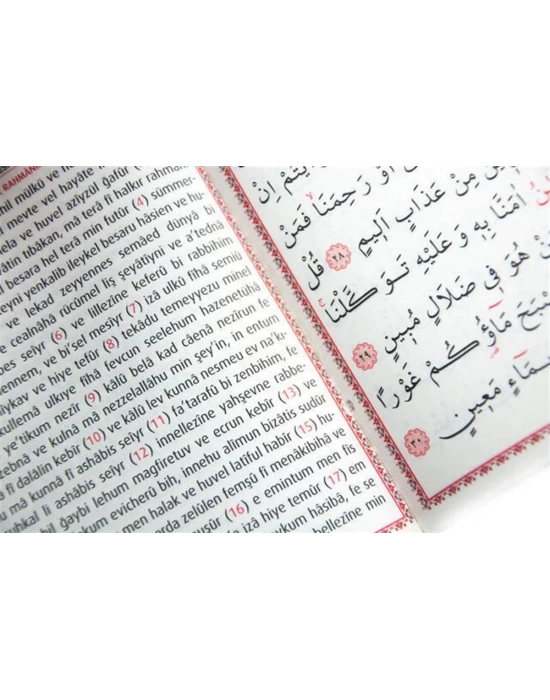 RAHMAN
hil mülkü ve
l mevte vel hayâte
ela ve huvel azîyzül gafûr
âtin tıbâkan, mâ terâ fî halkır rahmân
l besara hel terâ min futûr (4) sümmer-
eyni yenkalib ileykel besaru hâsien ve hu-
e lekad zeyyennes semâed dünyâ bi
e cealnâhâ rucûmel liş şeyâtiyni ve a'tednâ
bes seiyr (6) ve lillezîne keferû bi rabbihim
ennem, ve bi'sel mesîyr (7) izâ ulkû fîhâ semiû
iykav ve hiye tefûr (8) tekâdu temeyyezu minel
kullemâ ulkıye fîhâ fevcun seelehum hazenetühâ
e'tikum nezîr (9) kâlû belâ kad câenâ nezîrun fe
zebnâ ve kulnâ mâ nezzelallâhu min şey'in, in entum
â fî dalâlin kebîr (10) ve kâlû lev kunnâ nesmeu ev na'kı-
mâ kunnâ fî ashâbis seiyr (11) fa'tarafû bi zenbihim, fe
uhkal li ashâbis seiyr (12) innellezîne yahşevne rabbe-
bil ğaybi lehum magfiretuv ve ecrun kebîr (13) ve
kum evicherû bih, innehu alîmun bizâtis sudûr
men halak ve huvel latîful habîr (15) hu-
arda zelûlen femşû fî menâkibihâ ve
nuşûr (16) e emintum men fis
e izâ hiye temûr (17) em
eykum hâsibâ, fe se
bellezîne min
اِنْ
اَوْ رَحِمَنَاۙ فَمَنْ
مِنْ عَذَابٍ اَل۪يمٍ ﴿٢٨﴾ قُلْ
اٰمَنَّا بِه۪ وَعَلَيْهِ تَوَكَّلْنَاۚ
هُوَ ف۪ي ضَلَالٍ مُب۪ينٍ ﴿٢٩﴾
مَٓاؤُ۬كُمْ غَوْرًا
مَع۪ينٍ ﴿٣٠﴾